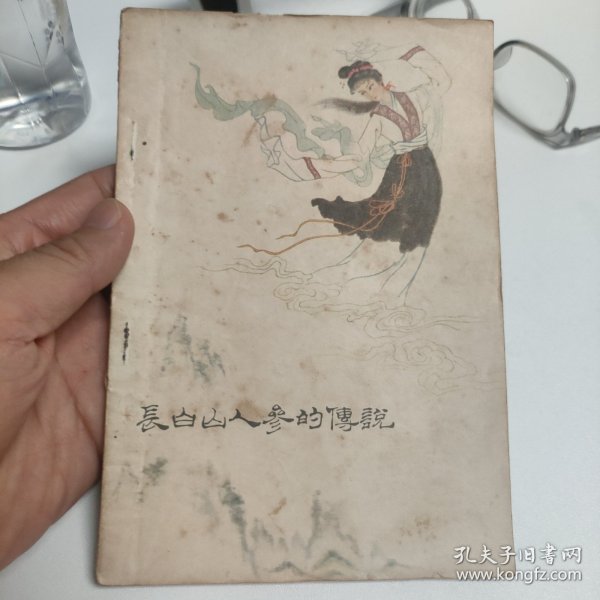 長白山人參的傳說
孔夫子旧书网
www.kongfz.com